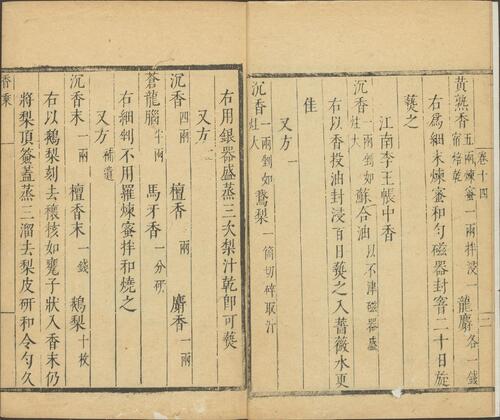 黃熟香五兩煉蜜一兩拌浸一宿焙乾 龍麝各一錢
右為細末煉蜜和勻磁器封窨二十日旋
爇之
江南李王帳中香
沉香一兩剉如炷大 蘇合油以不津磁器盛
右以香投油封浸百日爇之入薔薇水更
佳
又方一
沉香一兩剉如炷大 鵞梨一箇切碎取汁
右用銀器盛蒸三次梨汁乾即可爇
又方二
沉香四兩 檀香一兩 麝香一兩
蒼龍腦半兩 馬牙香一分研
右細剉不用羅煉蜜拌和燒之
又方補遺
沉香末一兩 檀香末一錢 鵝梨十枚
右以鵝梨刻去穰核如甕子狀入香末仍
將梨頂簽蓋蒸三溜去梨皮研和令勻久
卷十四
香乘